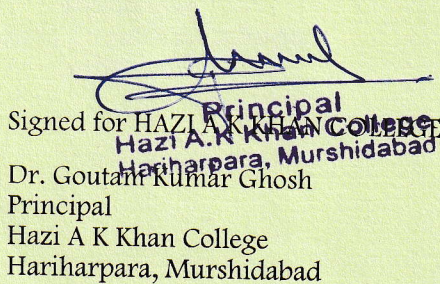 Principal
Signed for HAZI A K KHAN COLLEGE
Hazi A.K Khan College
Hariharpara, Murshidabad
Dr. Goutam Kumar Ghosh
Principal
Hazi A K Khan College
Hariharpara, Murshidabad